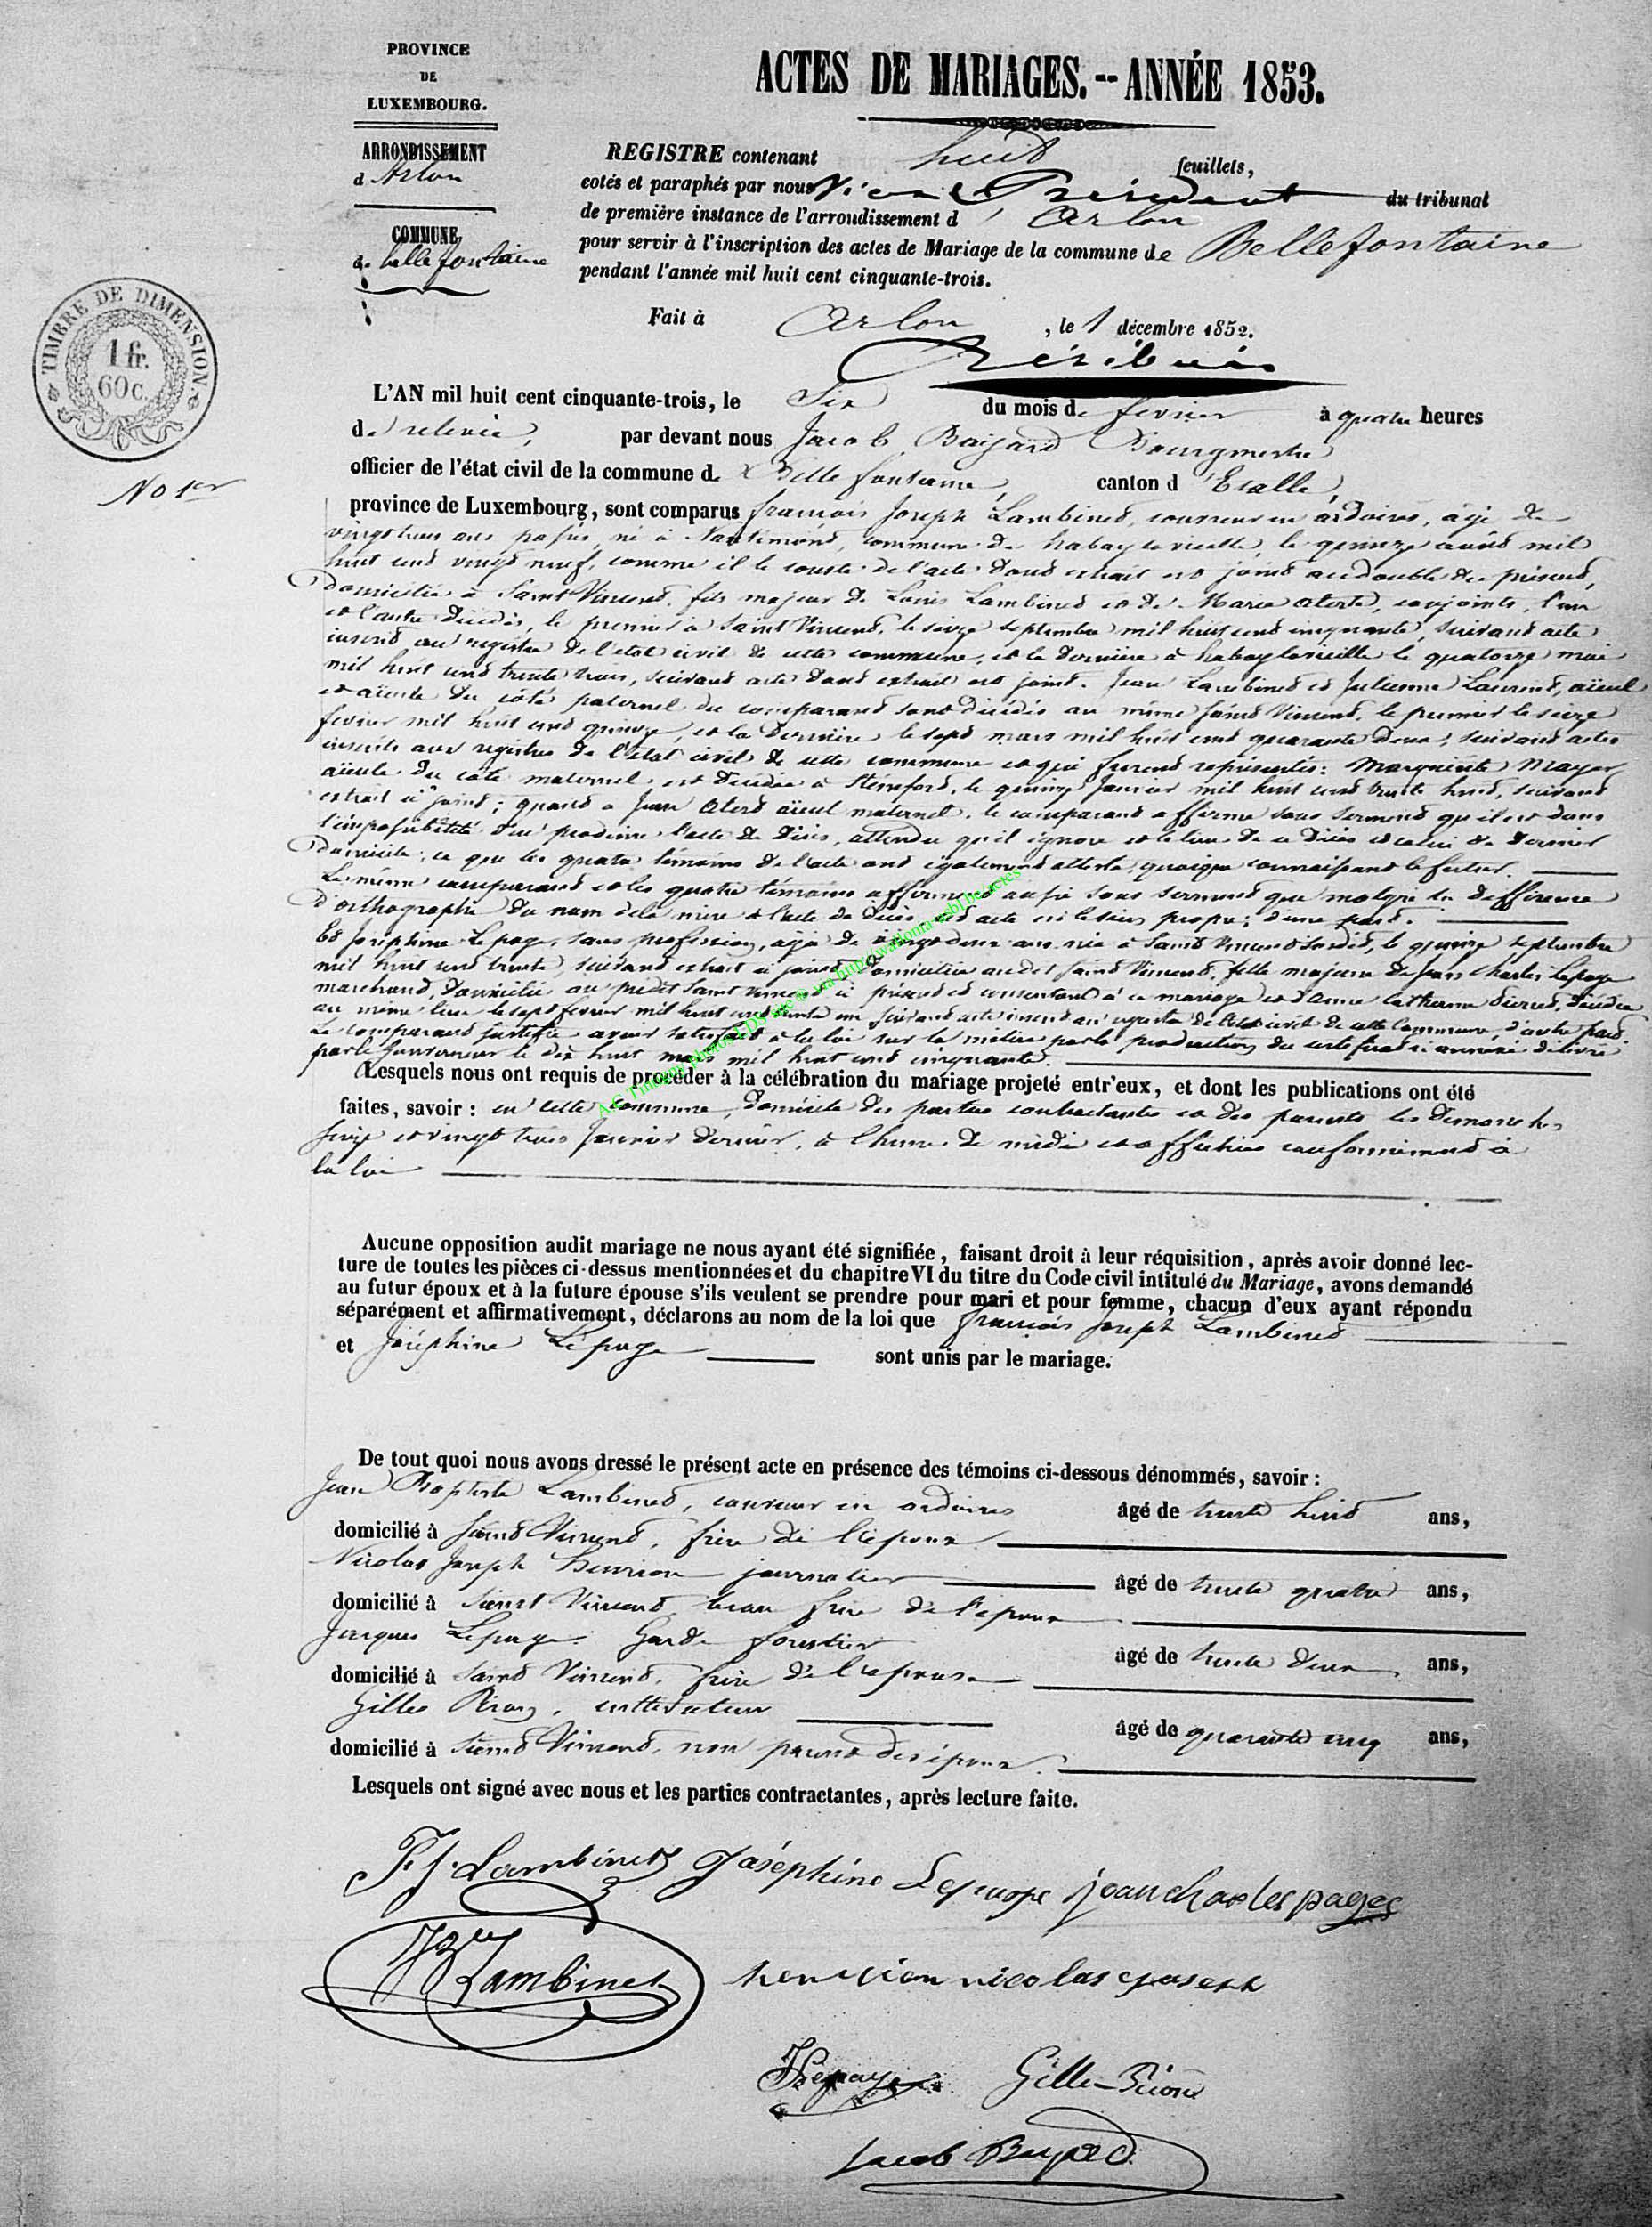 PROVINCE
DE
LUXEMBOURG.
ARRONDISSEMENT
d'Arlon
COMMUNE
de bellefontaine
TIMBRE DE DIMENSION
1 fr.
60 c.
No 1er
ACTES DE MARIAGES.-- ANNÉE 1853.
REGISTRE contenant huit feuillets,
cotés et paraphés par nous Vice Président du tribunal
de première instance de l'arrondissement d'Arlon
pour servir à l'inscription des actes de Mariage de la commune de Bellefontaine
pendant l'année mil huit cent cinquante-trois.
Fait à Arlon, le 1 décembre 1852.
L'AN mil huit cent cinquante-trois, le Six du mois de fevrier à quatre heures
de relevée, par devant nous Jacob Bourgmestre
officier de l'état civil de la commune de Bellefontaine, canton d'Etalle,
province de Luxembourg, sont comparus francois Joseph Lambinet, couvreur en ardoises, âgé de
vingt trois ans passés, né à Nantimont, commune de habay la vieille, le quinze août mil
huit cent vingt neuf, comme il le conste de l'acte dont extrait est joint au double du présent,
domicilié à Saint Vincent, fils majeur de Louis Lambinet et de Marie, conjoints, l'un
et l'autre décédés, le premier à Saint Vincent, le seize septembre mil huit cent cinquante, suivant acte
inscrit au registre de l'état civil de cette commune, et la dernière à habaylavieille le quatorze mai
mil huit cent trente trois, suivant acte dont extrait est joint. Jean Lambinet et Julienne Laurent, aïeul
et aïeule du côté paternel du comparant sont décédés au même Saint Vincent, le premier le seize
fevrier mil huit cent quinze, et la dernière le sept mars mil huit cent quarante deux, suivant actes
inscrits aux registres de l'état civil de cette commune et qui furent représentés: Marguerite Mayer
aïeule du côté maternel est décédée à Steinfort, le quinze Janvier mil huit cent trente huit, suivant
extrait ci joint; quant à Jean aïeul maternel, le comparant affirme sous serment qu'il est dans
l'impossibilité d'en produire l'acte de décès, attendu qu'il ignore et le lieu de ce décès et celui de dernier
domicile; ce que les quatre témoins de l'acte ont également attesté, quoique connaissant le futur.
Le même comparant et les quatre témoins affirment aussi sous serment que malgré la différence
d'orthographe du nom de la mère à l'acte de décès, cet acte est le sien propre; d'une part.
Et Joséphine Lepage, sans profession, âgée de vingt deux ans, née à Saint Vincent susdit, le quinze septembre
mil huit cent trente, suivant extrait ci joint, domiciliée au dit Saint Vincent, fille majeure de Jean Charles Lepage
marchand, domicilié au predit Saint Vincent ci présent et consentant à ce mariage et d'Anne Catherine, décédée
au même lieu le sept fevrier mil huit cent trente un suivant acte inscrit au registre de l'état civil de cette Commune, d'autre part.
Le comparant justifie avoir satisfait à la loi sur la milice par la production du certificat ci annexé délivré
par le Gouverneur le dix huit mars mil huit cent cinquante.
Lesquels nous ont requis de procéder à la célébration du mariage projeté entr'eux, et dont les publications ont été
faites, savoir : en cette commune, domicile des parties contractantes et des parents les dimanches
seize et vingt trois Janvier dernier, à l'heure de midi et affichées conformément à
la loi
Aucune opposition audit mariage ne nous ayant été signifiée, faisant droit à leur réquisition, après avoir donné lec-
ture de toutes les pièces ci-dessus mentionnées et du chapitre VI du titre du Code civil intitulé du Mariage, avons demandé
au futur époux et à la future épouse s'ils veulent se prendre pour mari et pour femme, chacun d'eux ayant répondu
séparément et affirmativement, déclarons au nom de la loi que françois Joseph Lambinet
et Joséphine Lepage sont unis par le mariage.
De tout quoi nous avons dressé le présent acte en présence des témoins ci-dessous dénommés, savoir :
Jean Baptiste Lambinet, couvreur en ardoises âgé de trente huit ans,
domicilié à Saint Vincent, frère de l'époux
Nicolas Joseph Henrion journalier âgé de trente quatre ans,
domicilié à Saint Vincent beau frère de l'époux
Jacques Lepage. Garde forestier âgé de trente deux ans,
domicilié à Saint Vincent, frère de l'epouse
Gilles Piron, instituteur âgé de quarante cinq ans,
domicilié à Saint Vincent, non parent des époux.
Lesquels ont signé avec nous et les parties contractantes, après lecture faite.
F.J. Lambinet Joséphine Lepage jean charles pages
JB Lambinet henrion nicolas joseph
JLepage Gille Piron
Jacob